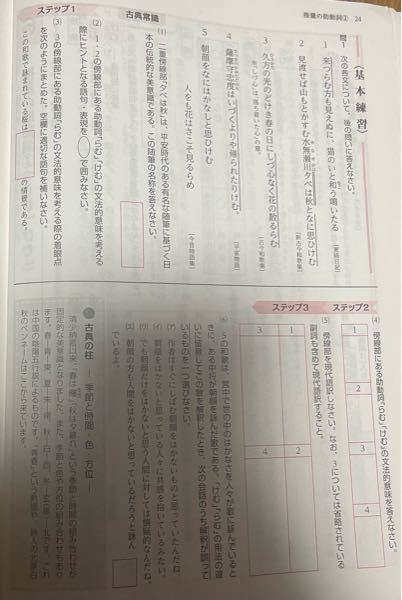 推量の助動詞② 24
〈基本練習〉
問1 次の各文について、後の問いに答えなさい。
1 来つらむ方も見えぬに、猿のいと和う鳴いたる
2 見渡せば山もとかすむ水無瀬川夕べは秋となに思ひけむ
〔新古今和歌集〕
3 久方の光のどけき春の日にしづ心なく花の散るらむ
〔古今和歌集〕
4 薩摩守忠度はいづくよりや帰られたりけむ、
〔平家物語〕
5 朝顔をなにはかなしと思ひけむ
人をも花はさこそ見るらめ
〔今昔物語集〕
古典常識
(1) 二重傍線部「夕べは秋」は、平安時代のある有名な随筆に基づく日
本の伝統的な美意識である。この随筆の名称を答えなさい。
ステップ1
(2) 1・2の傍線部にある助動詞「らむ」「けむ」の文法的意味を考える
際にヒントとなる語句・表現を○で囲みなさい。
(3) 3の傍線部にある助動詞「らむ」の文法的意味を考える際の着眼点
を次のようにまとめた。空欄に適切な語句を補いなさい。
この和歌で詠まれている桜は の情景である。
ステップ2
(4) 傍線部にある助動詞「らむ」「けむ」の文法的意味を答えなさい。
1
2
3
4
ステップ3
(5) 傍線部を現代語訳しなさい。なお、3については省略されている
副詞も含めて現代語訳すること。
1
2
3
4
(6) 5の和歌は、宮中で世の中のはかなさを人々が歌に詠んでいると
きに、ある中将が朝顔を詠んだ歌である。「けむ」「らむ」の用法の違
いに留意してこの歌を解釈したとき、次の会話のうち解釈が誤って
いるものを一つ選びなさい。
(ア) 作者はすぐにしぼむ朝顔をはかないものと思っていたんだね。
(イ) 朝顔をはかないと思っている人々に共感を抱いているみたい。
(ウ) でも朝顔だけをはかないと思う人間に対しては懐疑的なんだね。
(エ) 朝顔の方も人間をはかないと思っているだろうと詠ん
でいるよ。
●古典の柱 季節と時間 色 方位